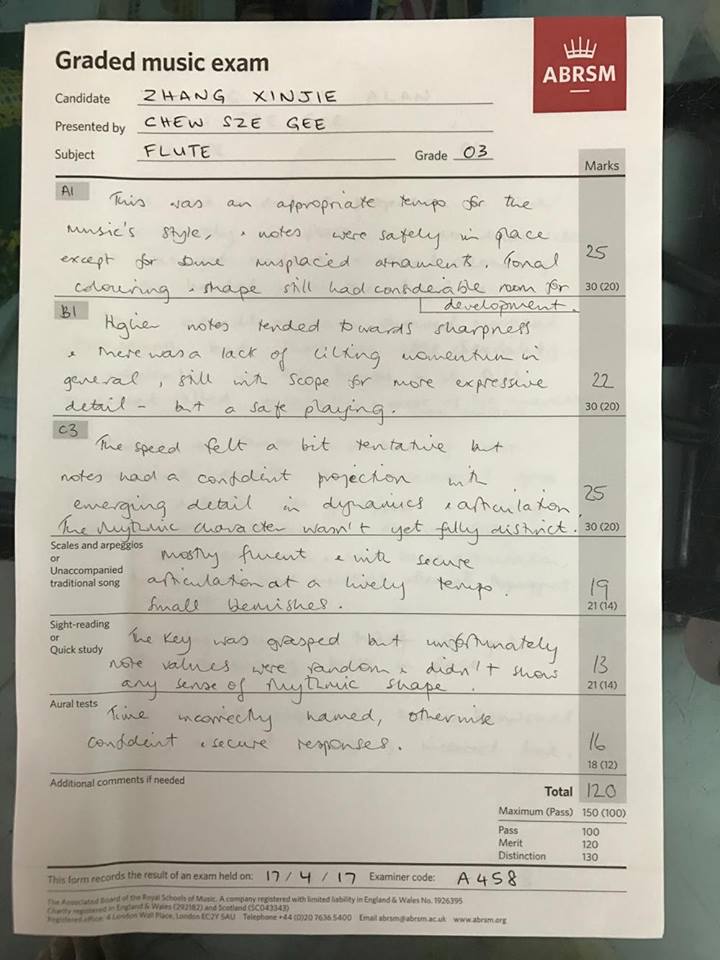 Graded music exam
ABRSM
Candidate ZHANG XINJIE
Presented by CHEW SZE GEE
Subject FLUTE Grade 03
Marks
A1
This was an appropriate tempo for the
music's style, & notes were safely in place
except for some misplaced ornaments. Tonal
colouring & shape still had considerable room for
development.
25
30 (20)
B1
Higher notes tended towards sharpness
& there was a lack of lilting momentum in
general, still with scope for more expressive
detail - but a safe playing.
22
30 (20)
C3
The speed felt a bit tentative but
notes had a confident projection with
emerging detail in dynamics & articulation.
The rhythmic character wasn't yet fully distinct.
25
30 (20)
Scales and arpeggios
or
Unaccompanied
traditional song
Mostly fluent & with secure
articulation at a lively tempo.
Small blemishes.
19
21 (14)
Sight-reading
or
Quick study
The key was grasped but unfortunately
note values were random & didn't show
any sense of rhythmic shape.
13
21 (14)
Aural tests
Time incorrectly named, otherwise
confident & secure responses.
16
18 (12)
Additional comments if needed
Total 120
Maximum (Pass) 150 (100)
Pass 100
Merit 120
Distinction 130
This form records the result of an exam held on: 17/4/17 Examiner code: A458
The Associated Board of the Royal Schools of Music. A company registered with limited liability in England & Wales No. 1926395
Charity registered in England & Wales (292182) and Scotland (SC043343)
Registered office: 4 London Wall Place, London EC2Y 5AU Telephone +44 (0)20 7636 5400 Email abrsm@abrsm.ac.uk www.abrsm.org